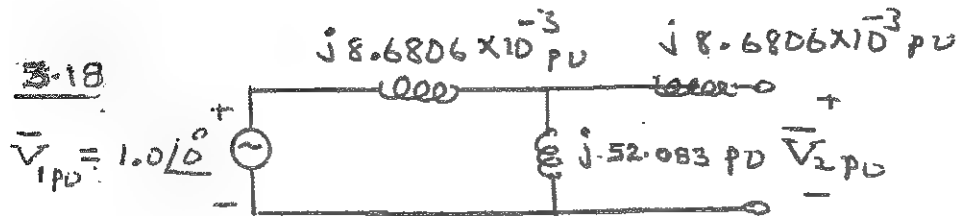 j 8.6806 X10⁻³ PU
j 8.6806X10⁻³ PU
3.18
+
V̄₁PU = 1.0∠0°
j.52.083 PU
+
V̄₂PU
−
−